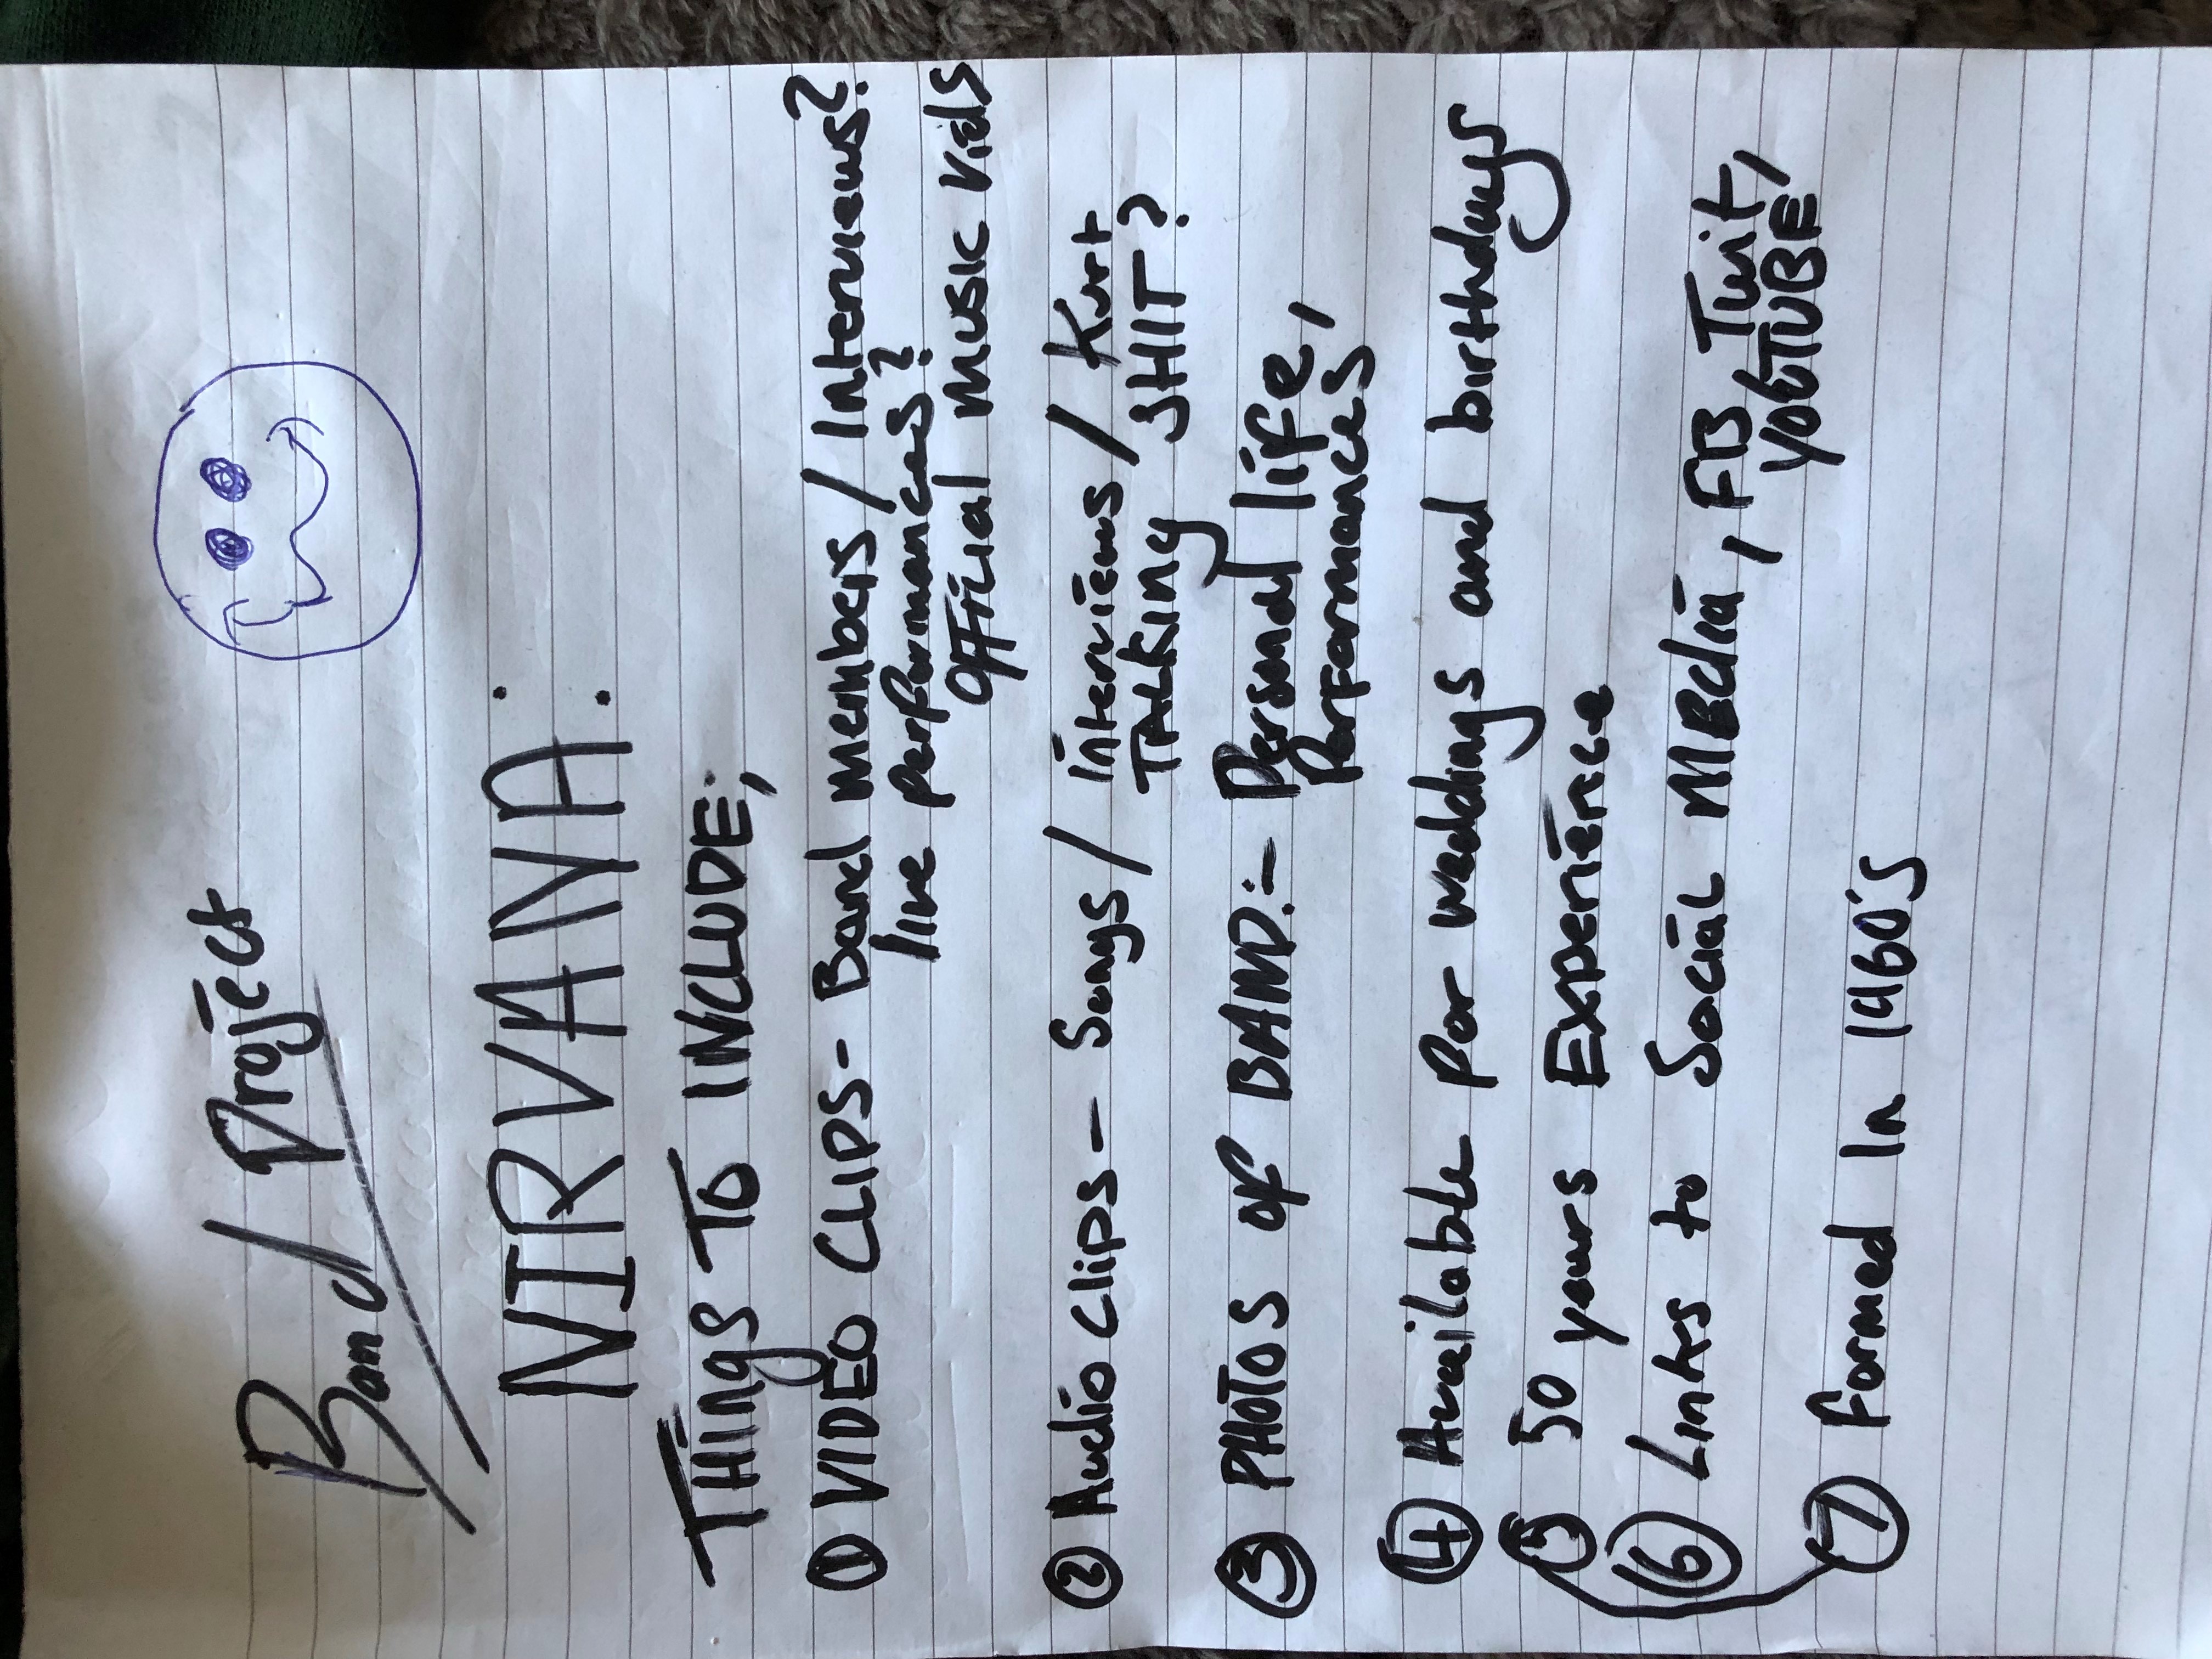 Band Project
NIRVANA:
THINGS TO INCLUDE;
① VIDEO CLIPS - Band members / Interviews?
live performances?
Official Music Vids
② Audio Clips - Songs / interviews / Kurt
TALKING SHIT?
③ PHOTOS of BAND:- Personal life,
Performances
④ Available for weddings and birthdays
⑤ 50 years Experience
⑥ Links to Social Media, FB Twit,
YOUTUBE
⑦ Formed In 1960's